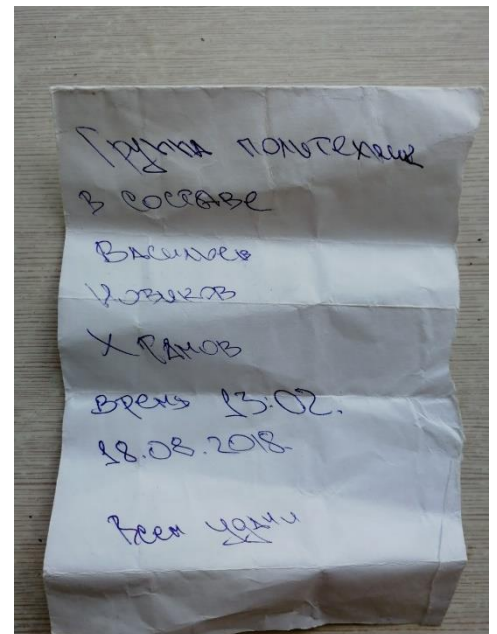 Группа политехник
в составе
Васильев
Новиков
Храмов
время 13:02.
18.08.2018.
Всем удачи